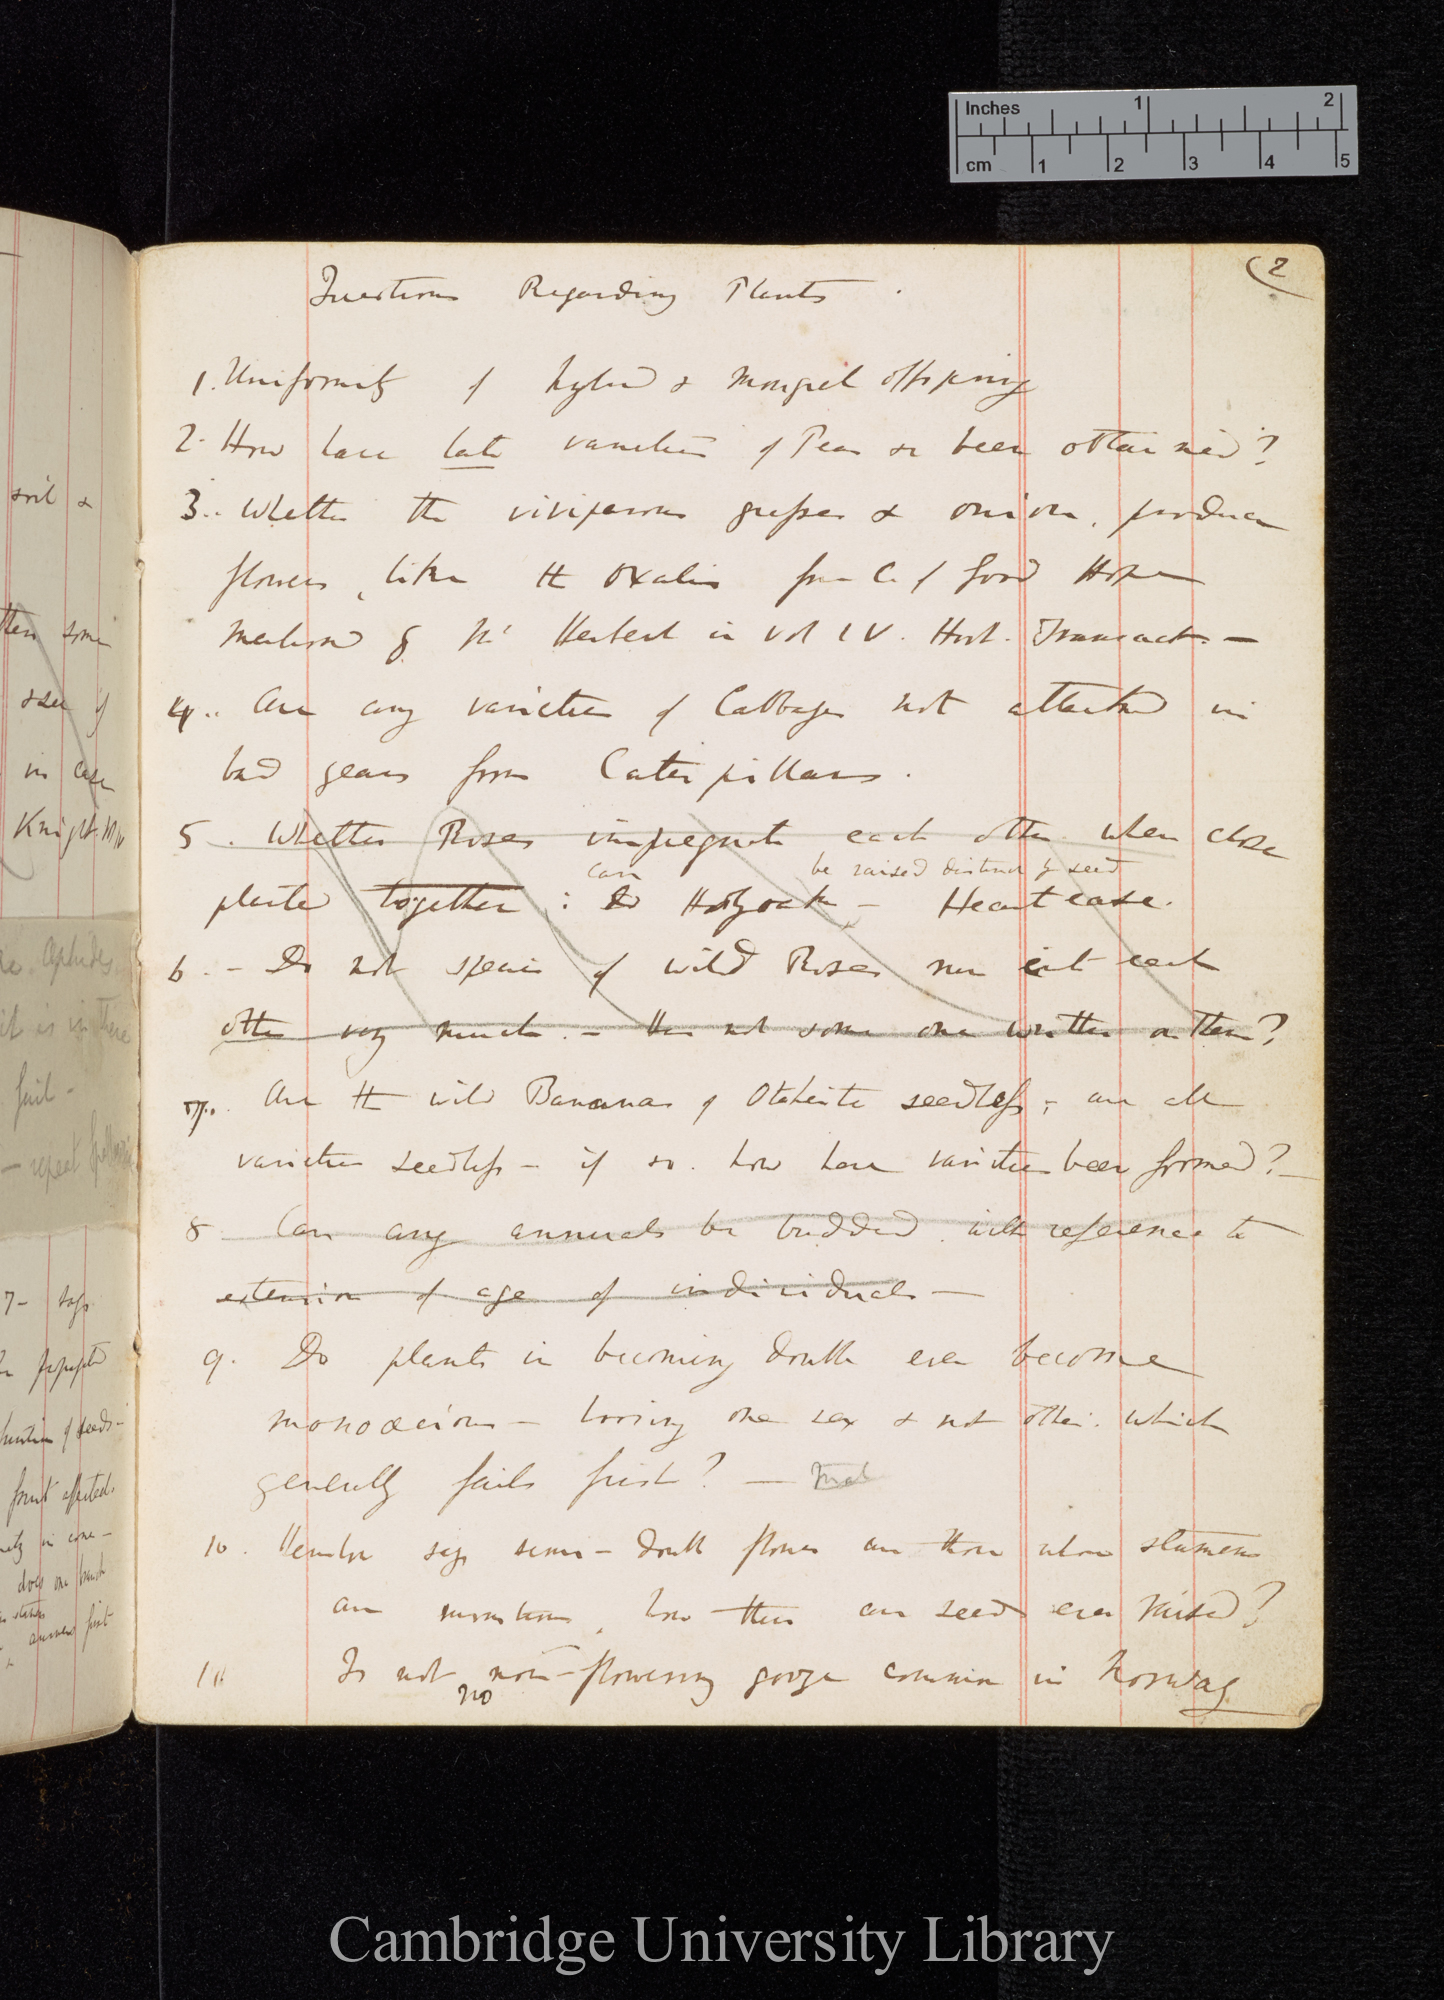 Inches 1 2
cm 1 2 3 4 5
(2
Questions Regarding Plants.
1. Uniformity of hybrid & Mongrel offspring
2. How have late varieties of Peas &c been obtained?
3.. Whether the viviparous grasses & onion, produce
flowers, like the Oxalis from C. of Good Hope
mentioned by Mr Herbert in Vol IV. Hort. Transact. —
4.. Are any varieties of Cabbages not attacked in
bad years from Caterpillars.
5. Whether Roses impregnate each other when close
can be raised distinct by seed
planted together: Do Hollyoak — Heartsease.
6. — Do not species of wild Roses run into each
other very much. — Has not some one written on them?
7.. Are the wild Bananas of Otaheite seedless; are all
varieties seedless — if so. how have varieties been formed? —
8 — Can any annuals be budded with reference to
extension of age of individuals —
9. Do plants in becoming double ever become
monoecious — loosing one sex & not other. which
generally fails first? —
10. Henslow says semi-double flowers are those whose stamens
are monstrous, how then are seeds ever raised?
11 Is not non-flowering gorze common in Norway
no
soil &
then some
& see if
in case
Knight
Aphides
it is in these
fail —
— repeat
7 — says
of seeds —
fruit affected.
in one —
does one branch
first
Cambridge University Library